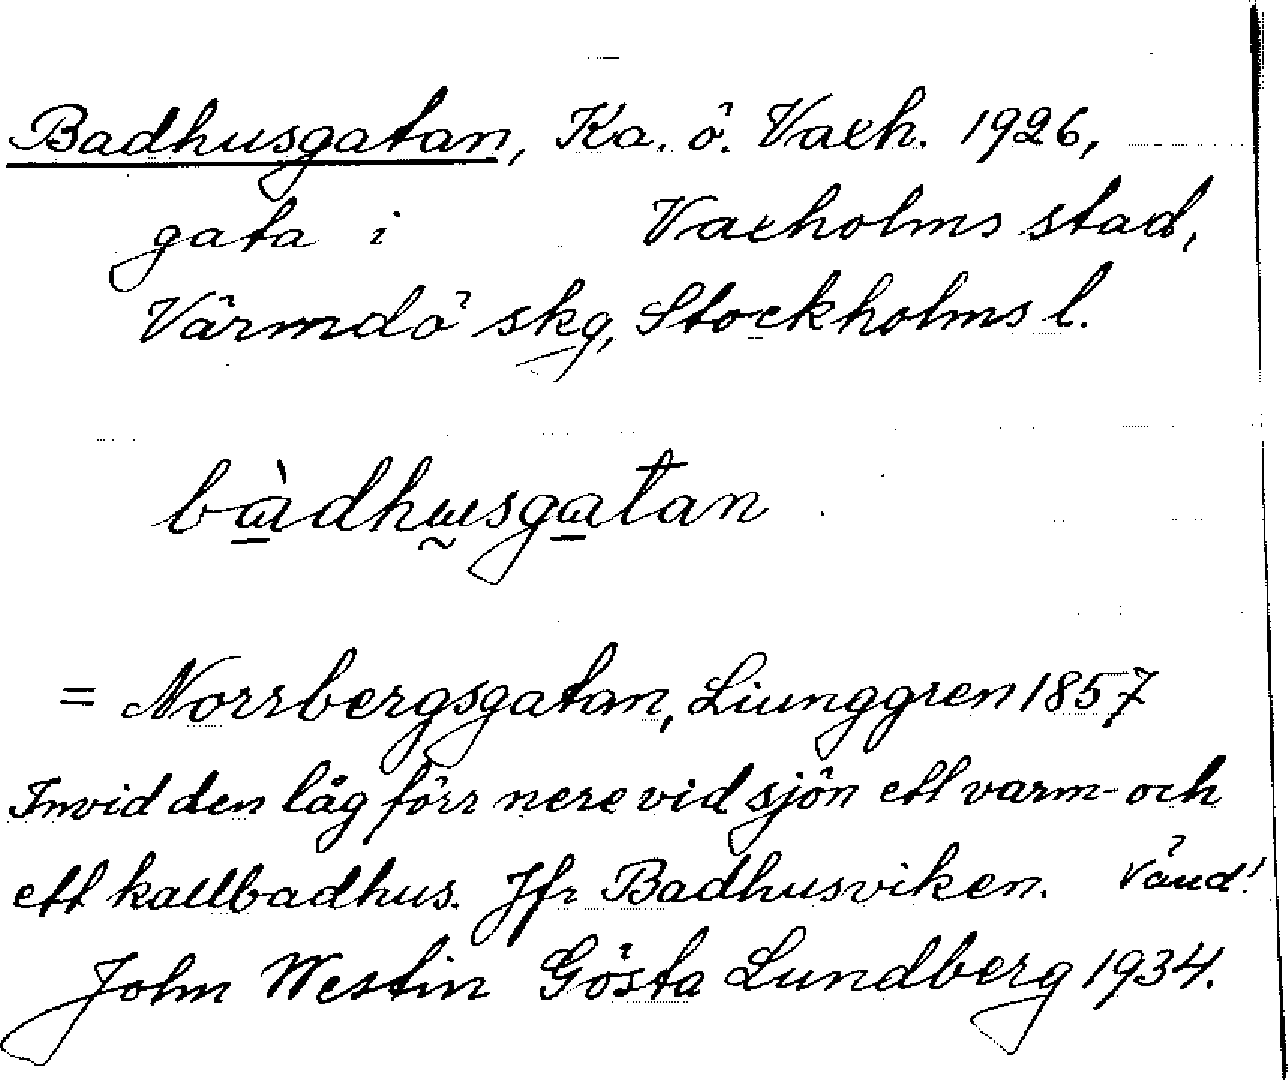 Badhusgatan, Ka. ö. Vaxh. 1926,
gata i Vaxholms stad,
Värmdö skg, Stockholms l.
bàdhusgatan
= Norrbergsgatan, Liunggren 1857
Invid den låg förr nere vid sjön ett varm- och
ett kallbadhus. Jfr Badhusviken. Vänd!
John Westin Gösta Lundberg 1934.